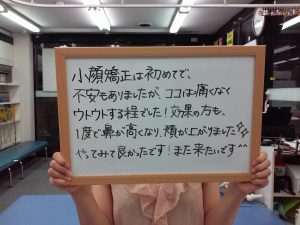 小顔矯正は初めてで、
不安もありましたが、ココは痛くなく
ウトウトする程でした！効果の方も、
1度で鼻が高くなり、頬が上がりました
やってみて良かったです！また来たいです^^